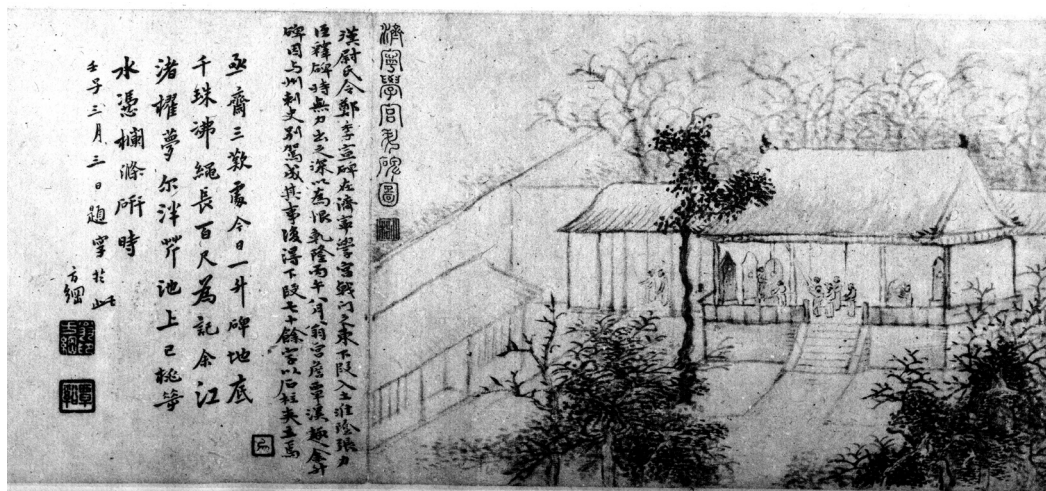 濟寧學宮升碑圖
漢尉氏令鄭季宣碑在濟寧學宮戟門之東下段入土淮陰張力
臣釋碑時無力出之深以為恨乾隆丙午八月翁宮詹覃溪趣余升
碑因与州刺史別駕成其事後得下段七十餘字以石柱夾立焉
亟齋三歎處今日一升碑地底
千珠沸繩長百尺為記余江
渚櫂夢尔泮芹池上巳桃花
水憑欄滌研時
壬子三月三日題於此
方綱